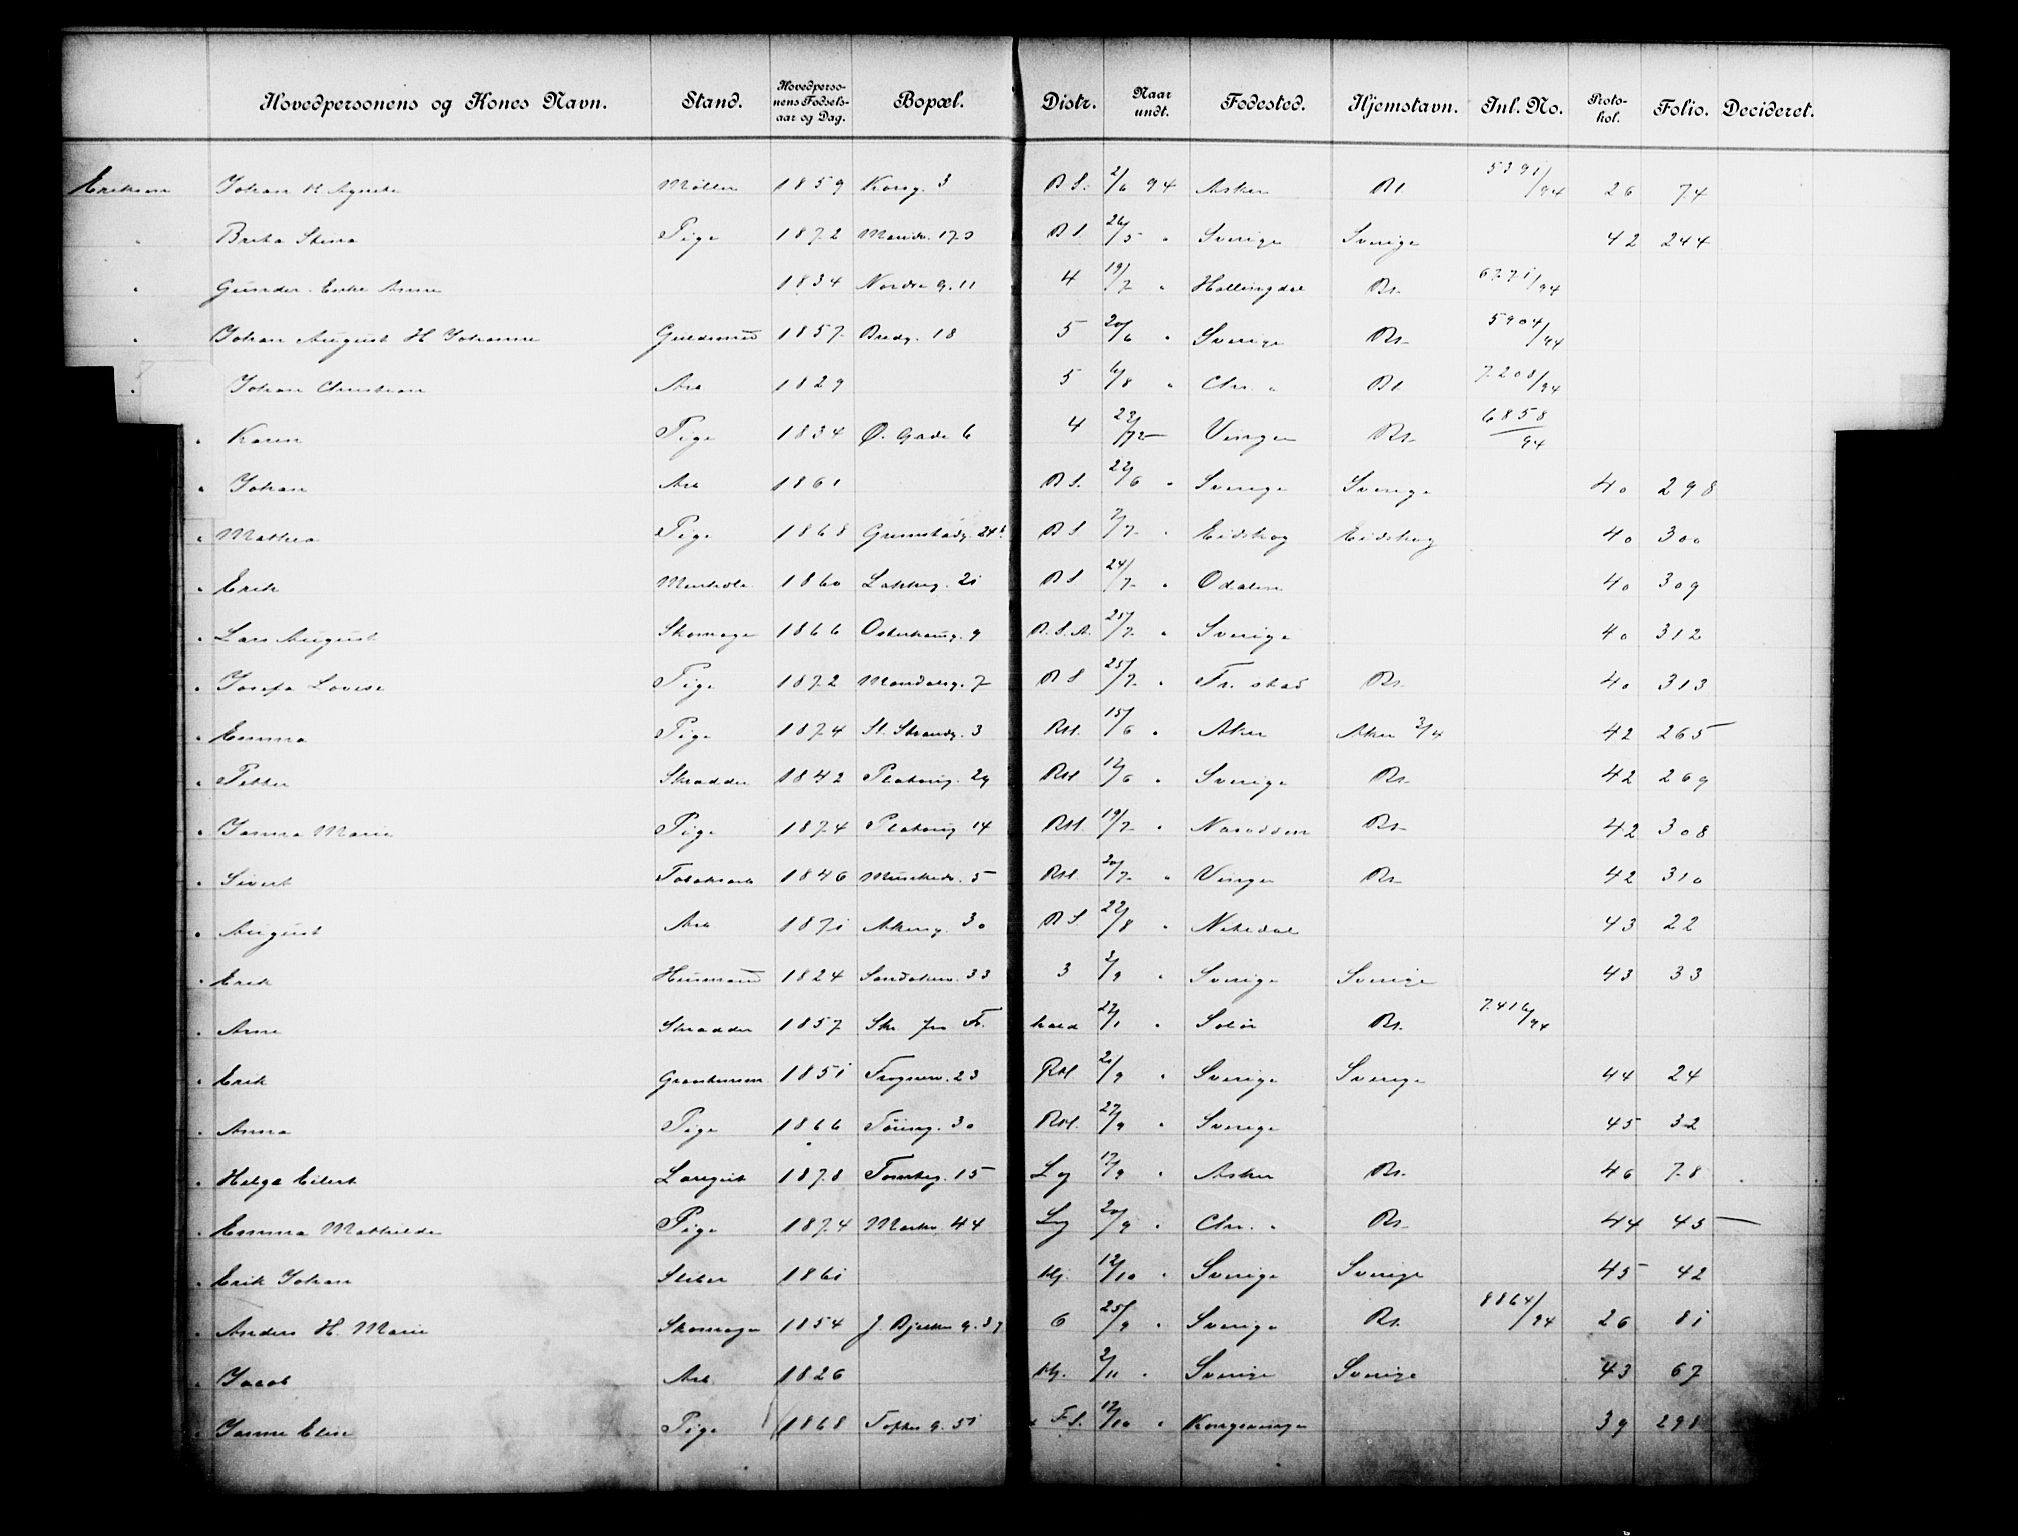 Hovedpersonens og Kones Navn. Stand. Hovedpersonens Fødselsaar og Dag. Bopæl. Distr. Naar undt. Fødested. Hjemstavn. Inl. No. Protokol. Folio. Decideret.
Eriksen Johan H Agnete Møller 1859 Korsg. 3 B S. 2/6 94 Asker Bt 5391/94 26 74
" Brita Stina Pige 1872 Maridv. 170 B S. 26/5 " Sverige Sverige 42 244
" Gunder. Enke Anne 1834 Nordre g. 11 4 19/7 " Hallingdal Bt. 6771/94
" Johan August H Johanne Guldsmed 1857 Bredg. 18 5 20/6 " Sverige Bt. 5904/94
" Johan Christian Arb 1829 5 6/8 " Chr. a Bt 7208/94
" Karen Pige 1834 Ø. Gade 6 4 Vinger Bt. 6858/94
" Johan Arb 1861 B S. 22/6 " Sverige Sverige 40 298
" Mathea Pige 1868 Grimstadg. 24b B S 2/7 " Eidskog Eidskog 40 300
" Erik 1860 Lakkeg. 21 B S 24/7 " Odalen 40 309
" Lars August Skomager 1866 Osterhausg. 9 B. S. A. 25/7 " Sverige 40 312
" Josefa Lovise Pige 1872 Mandalsg. 7 B S 25/7 " Fr. stad Bt. 40 313
" Emma Pige 1874 St. Strandg. 3 RH. 15/6 " Aker Aker 3/4 42 265
" Petter Skrædder 1842 Platoug. 29 RH 12/6 " Sverige Bt. 42 269
" Janna Marie Pige 1874 Platoug 14 RH. 19/7 " Næsodden Bt. 42 308
" Sivert Tobaksarb 1846 Munkedv. 5 RH. 20/7 " Vinger Bt. 42 310
" August Arb 1871 Akersg. 30 B S. 22/8 " Nitedal 43 22
" Erik Husmand 1824 Sandakerv. 33 3 3/9 " Sverige Sverige 43 33
" Arne Skrædder 1857 Skr fra Fr. hald 22/1 " Solør Bt. 7416/94
" Erik 1851 Frognerv. 23 RH 21/9 " Sverige Sverige 44 24
" Anna Pige 1866 Tøieng. 30 RH. 27/9 " Sverige 45 32
" Helga Eilert Løsgjut 1878 Tomteg. 15 Lg 17/9 " Asker Bt. 46 78
" Emma Mathilde Pige 1874 Markv. 44 Lg 20/9 " Chr. a Bt. 44 45
" Erik Johan Sliber 1861 Hj. 12/10 " Sverige Sverige 45 42
" Anders H. Marie Skomager 1854 J. Bjelkes g. 37 6 25/9 " Sverige Bt. 8864/94 26 81
" Jacob Arb. 1826 Hj. 2/11 " Sverige Sverige 43 67
" Janne Elise Pige 1868 Toftes g. 51 F. S. 12/10 " Kongsvinger 39 291